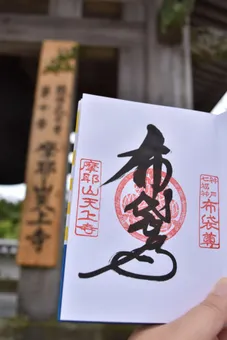 摩耶山天上寺
布袋尊
摩耶山天上寺
神戸
七福神
布袋尊